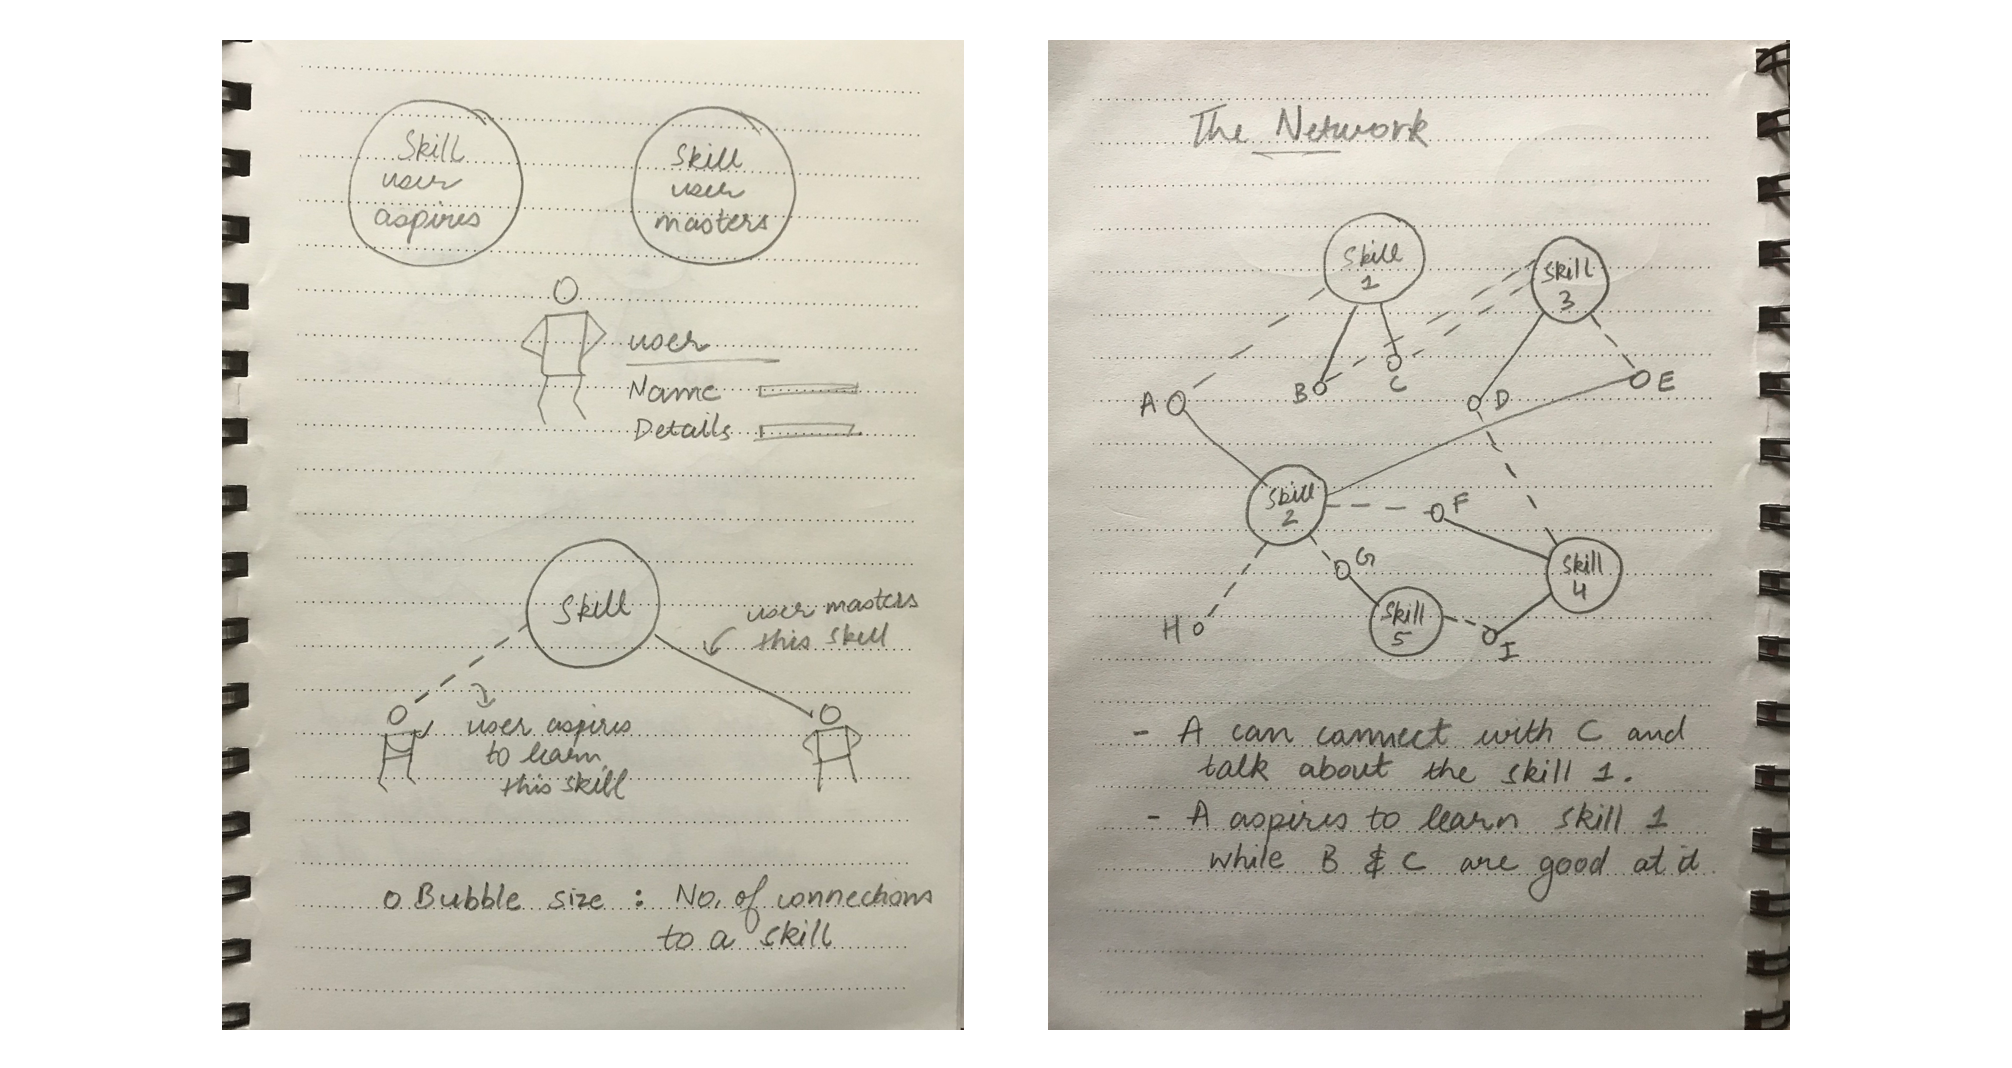 Skill
user
aspires
Skill
user
masters
user
Name
Details
Skill
user masters
this skill
user aspires
to learn
this skill
o Bubble size : No. of connections
to a skill
The Network
Skill
1
Skill
3
A
B
C
D
E
Skill
2
F
G
Skill
4
H
Skill
5
I
- A can connect with C and
talk about the skill 1.
- A aspires to learn skill 1
while B & C are good at it.